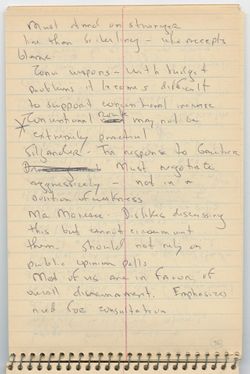 Must stand on stronger
line than B. Destiny - who accepts
blame
Conv weapons - with budget
problems it becomes difficult
to support conventional increase
X Conventional may not be
extremely practical
Siljander - In response to
Must negotiate
aggressively - not in a
position of weakness
Ma Morease: Dislikes discussing
this but cannot circumvent
them. Should not rely on
public opinion polls
Most of us are in favor of
overall disarmament. Emphasizes
need for consultation